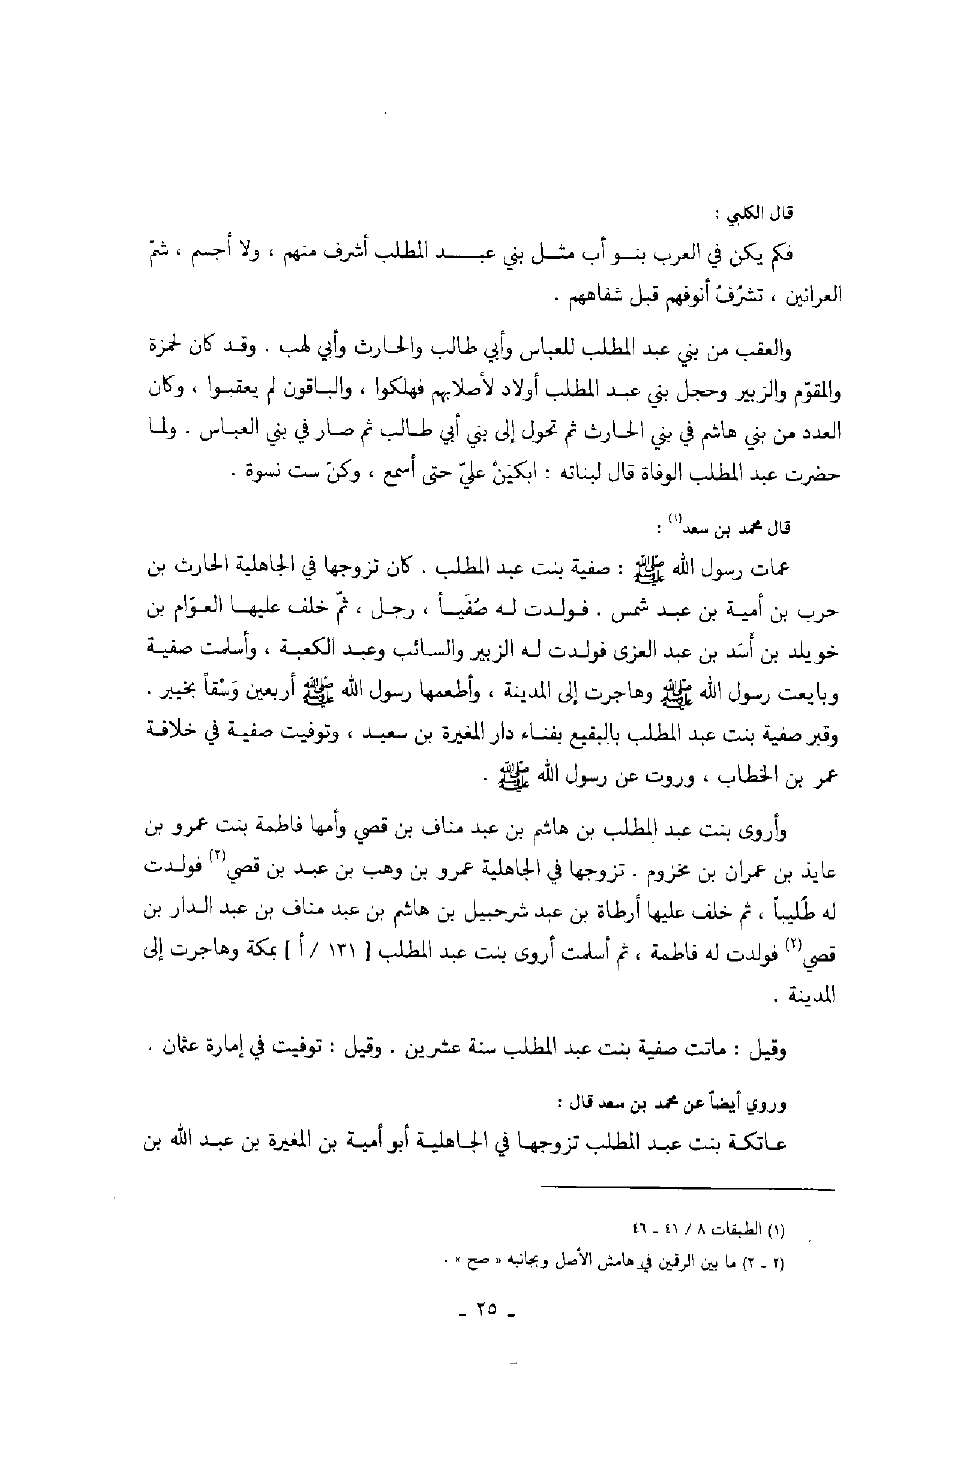 قال الكلبي :
فلم يكن في العرب بنو أب مثل بني عبد المطلب أشرف منهم ، ولا أجسم ، شمّ
العرانين ، تشرُفُ أنوفهم قبل شفاههم .
والعقب من بني عبد المطلب للعباس وأبي طالب والحارث وأبي لهب . وقد كان لحمزة
والمقوّم والزبير وحجل بني عبد المطلب أولاد لأصلابهم فهلكوا ، والباقون لم يعقبوا ، وكان
العدد من بني هاشم في بني الحارث ثم تحول إلى بني أبي طالب ثم صار في بني العباس . ولما
حضرت عبد المطلب الوفاة قال لبناته : ابكينَ عليّ حتى أسمع ، وكنّ ست نسوة .
قال محمد بن سعد(١) :
عمات رسول الله ﷺ : صفية بنت عبد المطلب . كان تزوجها في الجاهلية الحارث بن
حرب بن أمية بن عبد شمس . فولدت له صُفَياً ، رجل ، ثمّ خلف عليها العوّام بن
خويلد بن أسَد بن عبد العزى فولدت له الزبير والسائب وعبد الكعبة ، وأسلمت صفية
وبايعت رسول الله ﷺ وهاجرت إلى المدينة ، وأطعمها رسول الله ﷺ أربعين وَسْقاً بخيبر .
وقبر صفية بنت عبد المطلب بالبقيع بفناء دار المغيرة بن سعيد ، وتوفيت صفية في خلافة
عمر بن الخطاب ، وروت عن رسول الله ﷺ .
وأروى بنت عبد المطلب بن هاشم بن عبد مناف بن قصي وأمها فاطمة بنت عمرو بن
عايذ بن عمران بن مخزوم . تزوجها في الجاهلية عمرو بن وهب بن عبد بن قصي(٢) فولدت
له طُلَيباً ، ثم خلف عليها أرطاة بن عبد شرحبيل بن هاشم بن عبد مناف بن عبد الدار بن
قصي(٢) فولدت له فاطمة ، ثم أسلمت أروى بنت عبد المطلب [ ١٣١ / أ ] بمكة وهاجرت إلى
المدينة .
وقيل : ماتت صفية بنت عبد المطلب سنة عشرين . وقيل : توفيت في إمارة عثمان .
وروي أيضاً عن محمد بن سعد قال :
عاتكة بنت عبد المطلب تزوجها في الجاهلية أبو أمية بن المغيرة بن عبد الله بن
(١) الطبقات ٨ / ٤١ ـ ٤٦
(٢ ـ ٢) ما بين الرقمين في هامش الأصل وبجانبه « صح » .
ـ ٢٥ ـ